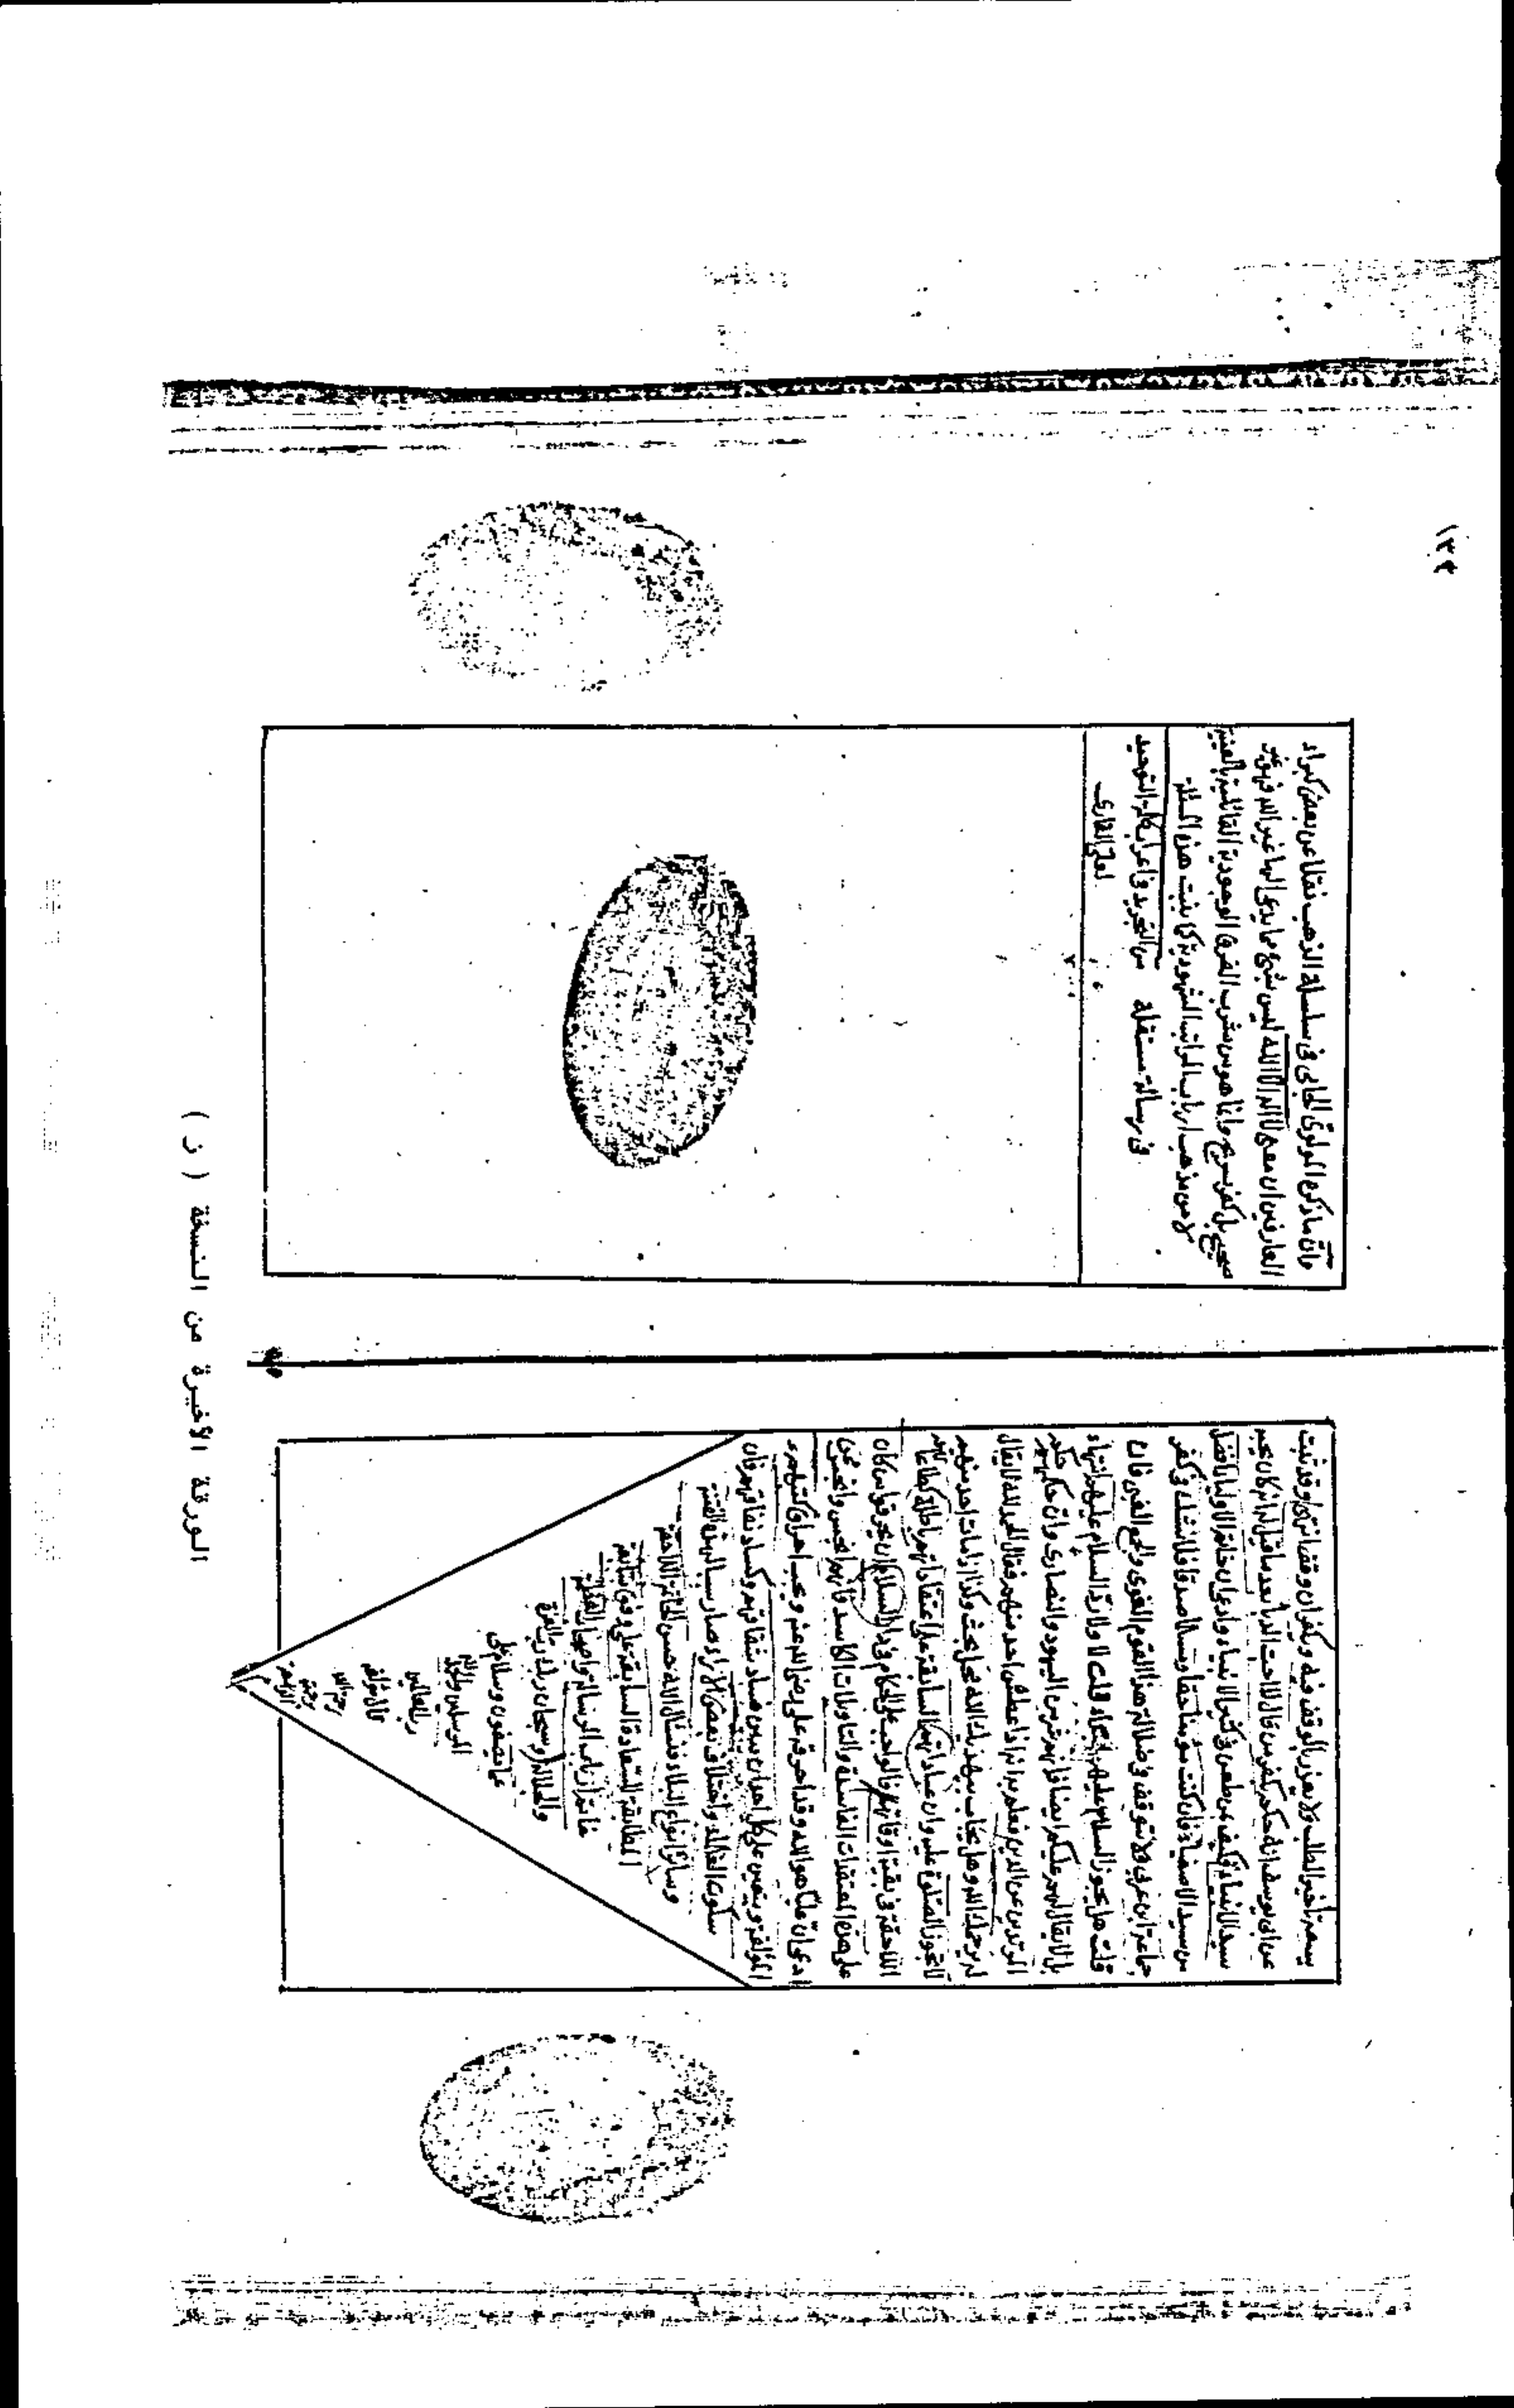 بسهم تأخير الطلب ولا يعذر بالوقف فيه ويكفر ان وقف انتهى وقد ثبت
عن ابى يوسف انه حكم بكفر من قال لا احب الدبا بعد ما قيل له انه كان يحبه
سيد الانبياء فكيف بمن طعن فى كثير الانبياء وادعى ان خاتم الاولياء افضل
من سيد الاصفياء فان كنت مؤمنا حقا ومسلما صدقا فلا تشك فى كفر
جماعة ابن عربى ولا تتوقف فى ضلالة هذا القوم الغوى والجمع الغبى فان
قلت هل يجوز السلام عليهم ابتداء قلت لا ولا رد السلام عليهم
بل لا يقال لهم عليكم ايضا فانهم شر من اليهود والنصارى وان حكمهم حكم
المرتدين عن الدين فعلم به انه اذا عطس احد منهم فقال الحمد لله لا يقال
له يرحمك الله وهل يجاب بيهديك الله محل بحث وكذا اذا مات احد منهم
لا يجوز الصلوة عليه وان عباداتهم السابقة على اعتقاداتهم باطلة كطاعاتهم
اللاحقة فى بقية اوقاتهم فالواجب على الحكام فى دار السلام ان يحرقوا من كان
على هذه المعتقدات الفاسدة والتاويلات الكاسدة فانهم انجس وانجس ممن
ادعى ان عليا هو الله وقد احرقهم على رضى الله عنه ويجب احراق كتبهم
المؤلفة ويتعين على كل احد ان يبين فساد شقاقهم وكساد نفاقهم فان
سكوت العلماء واختلاف بعض الاراء صار سببا لهذه الفتنة
وسائر انواع البلاء فنسأل الله حسن الخاتمة اللاحقة
المطابقة للسعادة السابقة على وفق متابعة
خاتم ارباب الرسالة واصحاب
والجلالة وسبحان ربك رب العزة
عما يصفون وسلام على
المرسلين والحمد لله
رب العالمين
قال مؤلفه
رحمه الله
م
وان ما ذكره المولوى الجامى فى سلسلة الذهب نقلا عن بعض كبراء
العارفين ان معنى لا اله الا الله ليس شئ مما يدعى الها غير الله فهو غير
صحيح بل كفر صريح وانما هو من مشرب الفرقة الوجودية القائلية بالعينية
لا من مذهب ارباب المراتب الشهودية كما بينت هذه المسئلة
فى رسالة مستقلة من التجريد فى اعراب كلمة التوحيد
لعلى القارى
١٣٣
الورقة الأخيرة من النسخة ( ز )